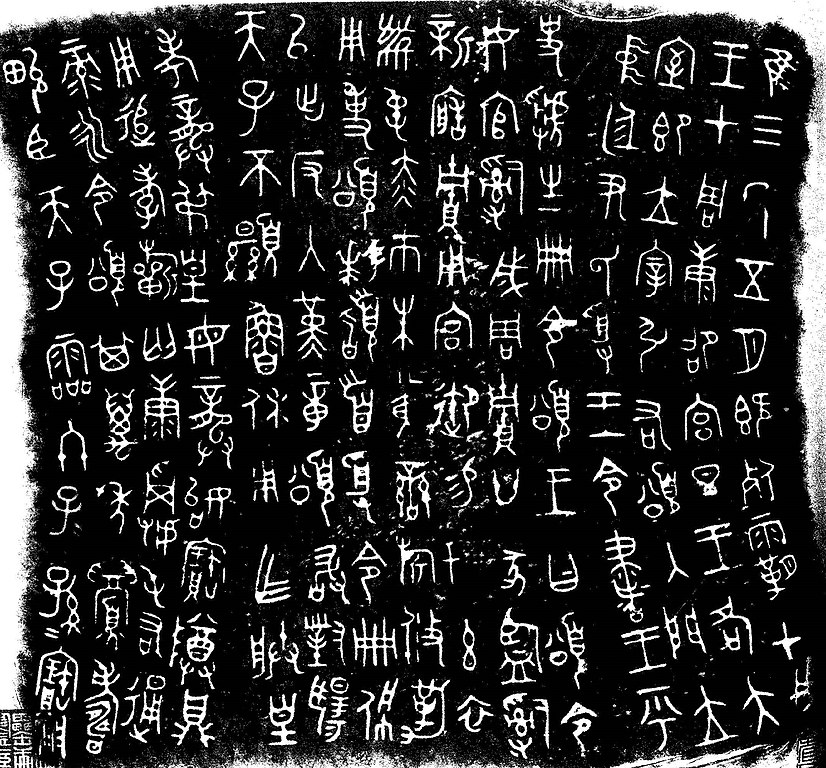 隹三年五月既死霸甲戌
王才周康卲宮旦王各大
室即立宰引右頌入門立
中廷尹氏受王令書王乎
史虢生冊令頌王曰頌令
女官𤔲成周貯廿家監𤔲
新寤貯用宮御易女玄衣
黹屯赤巿朱黃䜌旂攸勒
用事頌拜𩒨首受令冊佩
以出反入堇章頌敢對揚
天子不顯魯休用乍朕皇
考龏弔皇母龏始寶尊鼎
用追孝祈匄康𩁹屯右通
彔永令頌其萬年眉壽
畯臣天子霝冬子孫寶用